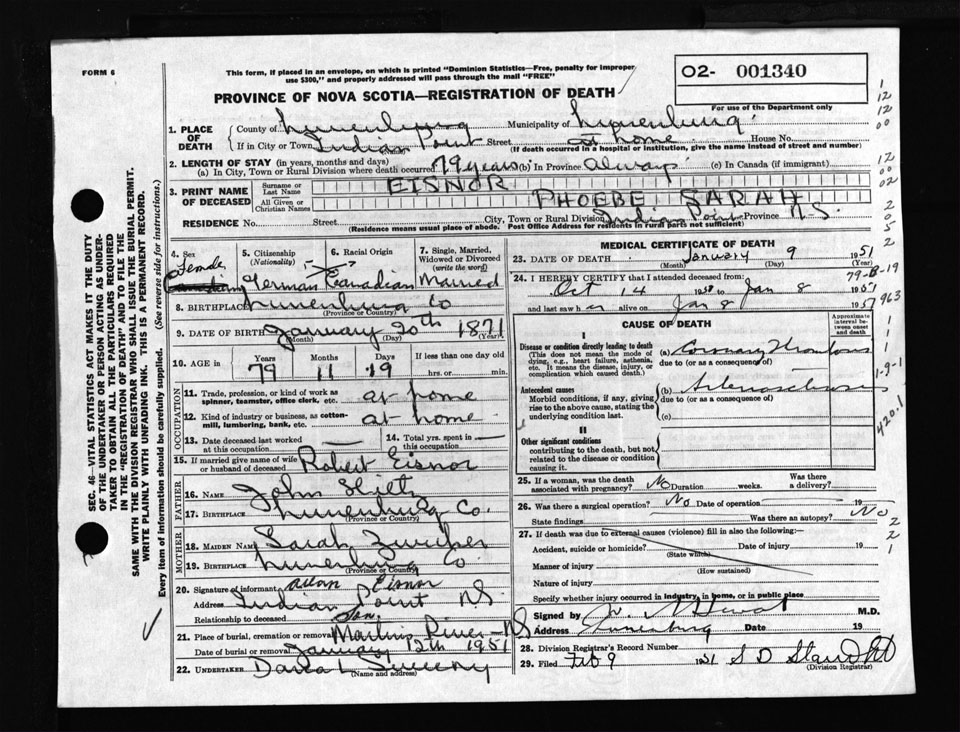 FORM 6
This form, if placed in an envelope, on which is printed "Dominion Statistics—Free, penalty for improper
use $300," and properly addressed will pass through the mail "FREE"
O2- 001340
For use of the Department only
PROVINCE OF NOVA SCOTIA—REGISTRATION OF DEATH
1. PLACE OF DEATH County of Lunenburg Municipality of Lunenburg
If in City or Town Indian Point Street at home House No.
(If death occurred in a hospital or institution, give the name instead of street and number)
2. LENGTH OF STAY (in years, months and days)
(a) In City, Town or Rural Division where death occurred 79 years (b) In Province always (c) In Canada (if immigrant)
3. PRINT NAME OF DECEASED Surname or Last Name EISNOR
All Given or Christian Names PHOEBE SARAH
RESIDENCE No. Street City, Town or Rural Division Indian Point Province N.S.
(Residence means usual place of abode. Post Office Address for residents in rural parts not sufficient)
4. Sex Female
5. Citizenship (Nationality) German
6. Racial Origin Canadian
7. Single, Married, Widowed or Divorced (write the word) Married
8. BIRTHPLACE Lunenburg Co
(Province or Country)
9. DATE OF BIRTH January 20th 1871
(Month) (Day) (Year)
10. AGE in Years Months Days If less than one day old
79 11 19 hrs. or min.
OCCUPATION
11. Trade, profession, or kind of work as spinner, teamster, office clerk, etc. at home
12. Kind of industry or business, as cotton-mill, lumbering, bank, etc. at home
13. Date deceased last worked at this occupation — 14. Total yrs. spent in this occupation —
15. If married give name of wife or husband of deceased Robert Eisnor
FATHER
16. NAME John
17. BIRTHPLACE Lunenburg Co.
(Province or Country)
MOTHER
18. MAIDEN NAME Sarah Zwicker
19. BIRTHPLACE Lunenburg Co
(Province or Country)
20. Signature of informant Allan Eisnor
Address Indian Point N.S.
Relationship to deceased Son
21. Place of burial, cremation or removal Martins River - NS
Date of burial or removal January 12th 1951
22. UNDERTAKER Sweeny
(Name and address)
MEDICAL CERTIFICATE OF DEATH
23. DATE OF DEATH January 9 1951
(Month) (Day) (Year)
79-B-19
24. I HEREBY CERTIFY that I attended deceased from:
Oct 14 1950 to Jan 8 1951
and last saw her alive on Jan 8 1951
963
CAUSE OF DEATH
Approximate interval between onset and death
Disease or condition directly leading to death
(This does not mean the mode of dying, e.g., heart failure, asthenia, etc. It means the disease, injury, or complication which caused death.)
(a) Coronary Thrombosis
due to (or as a consequence of)
Antecedent causes
Morbid conditions, if any, giving rise to the above cause, stating the underlying condition last.
(b) Arteriosclerosis
due to (or as a consequence of)
(c)
II
Other significant conditions
contributing to the death, but not related to the disease or condition causing it.
1-9-1
420.1
25. If a woman, was the death associated with pregnancy? No Duration weeks. Was there a delivery?
26. Was there a surgical operation? No Date of operation 19
State findings Was there an autopsy? No
27. If death was due to external causes (violence) fill in also the following:
Accident, suicide or homicide? Date of injury 19
(State which)
Manner of injury
(How sustained)
Nature of injury
Specify whether injury occurred in industry, in home, or in public place
Signed by M.D.
Address Lunenburg Date 19
28. Division Registrar's Record Number
29. Filed Feb 9 1951 S D
(Division Registrar)
SEC. 46—VITAL STATISTICS ACT MAKES IT THE DUTY
OF THE UNDERTAKER OR PERSON ACTING AS UNDER-
TAKER TO OBTAIN ALL THE PARTICULARS REQUIRED
IN THE "REGISTRATION OF DEATH" AND TO FILE THE
SAME WITH THE DIVISION REGISTRAR WHO SHALL ISSUE THE BURIAL PERMIT.
WRITE PLAINLY WITH UNFADING INK. THIS IS A PERMANENT RECORD.
Every item of information should be carefully supplied. (See reverse side for instructions.)